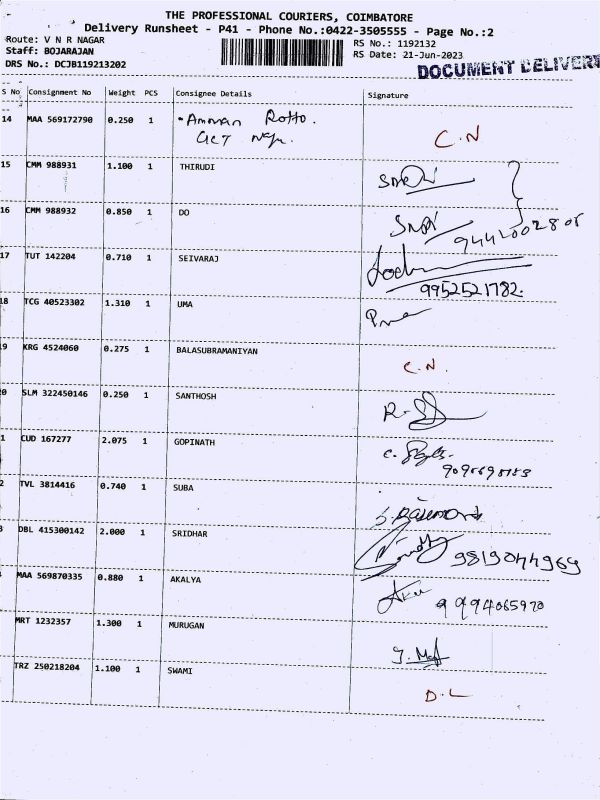 THE PROFESSIONAL COURIERS, COIMBATORE
Delivery Runsheet - P41 - Phone No.:0422-3505555 - Page No.:2
Route: V N R NAGAR
RS No.: 1192132
Staff: BOJARAJAN
RS Date: 21-Jun-2023
DRS No.: DCJB119213202
DOCUMENT DELIVERY
S No Consignment No Weight PCS Consignee Details Signature
14 MAA 569172790 0.250 1 Amman C.N
15 CMM 988931 1.100 1 THIRUDI
16 CMM 988932 0.850 1 DO
17 TUT 142204 0.710 1 SEIVARAJ
9952521782.
18 TCG 40523302 1.310 1 UMA
9 KRG 4524060 0.275 1 BALASUBRAMANIYAN C.N.
0 SLM 322450146 0.250 1 SANTHOSH
1 CUD 167277 2.075 1 GOPINATH
2 TVL 3814416 0.740 1 SUBA
3 DBL 415300142 2.000 1 SRIDHAR 9819044969
MAA 569870335 0.880 1 AKALYA 9994065970
MRT 1232357 1.300 1 MURUGAN
TRZ 250218204 1.100 1 SWAMI D.L